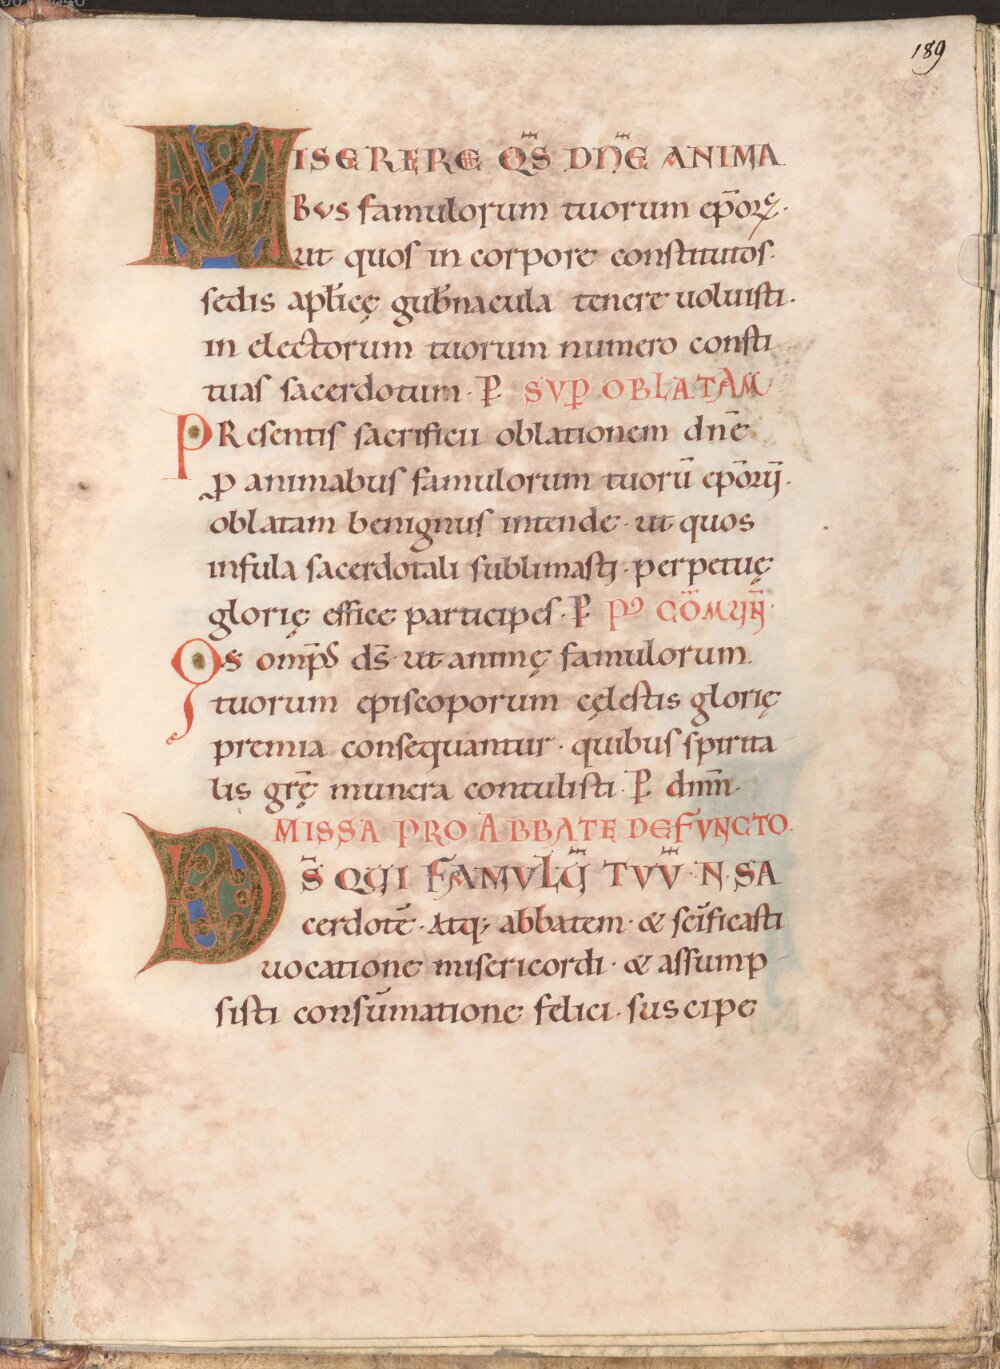 189
MISERERE Q̄S DN̄E ANIMA
BVS famulorum tuorum ep̄orꝫ·
ut quos in corpore constitutos·
sedis apl̄icę gub̄nacula tenere uoluisti·
in electorum tuorum numero consti
tuas sacerdotum· P̄ SVP̄ OBLATAM
PResentis sacrificii oblationem dn̄e
ꝓ animabus famulorum tuorū ep̄orū·
oblatam benignus intende· ut quos
infula sacerdotali sublimasti· perpetuę
glorię effice participes· P̄ Pꝰ CŌMVN̄·
Qs omp̄s ds̄ ut animę famulorum
tuorum episcoporum cęlestis glorię
premia consequantur· quibus spirita
lis gr̄ę munera contulisti· P̄ dn̄m·
MISSA PRO ABBATE DEFVNCTO·
DS̄ QUI FAMVLŪ TVV̄ N· SA
cerdotē· Atq; abbatem· & sc̄ificasti
uocatione misericordi· & assump
sisti consūmatione felici· suscipe